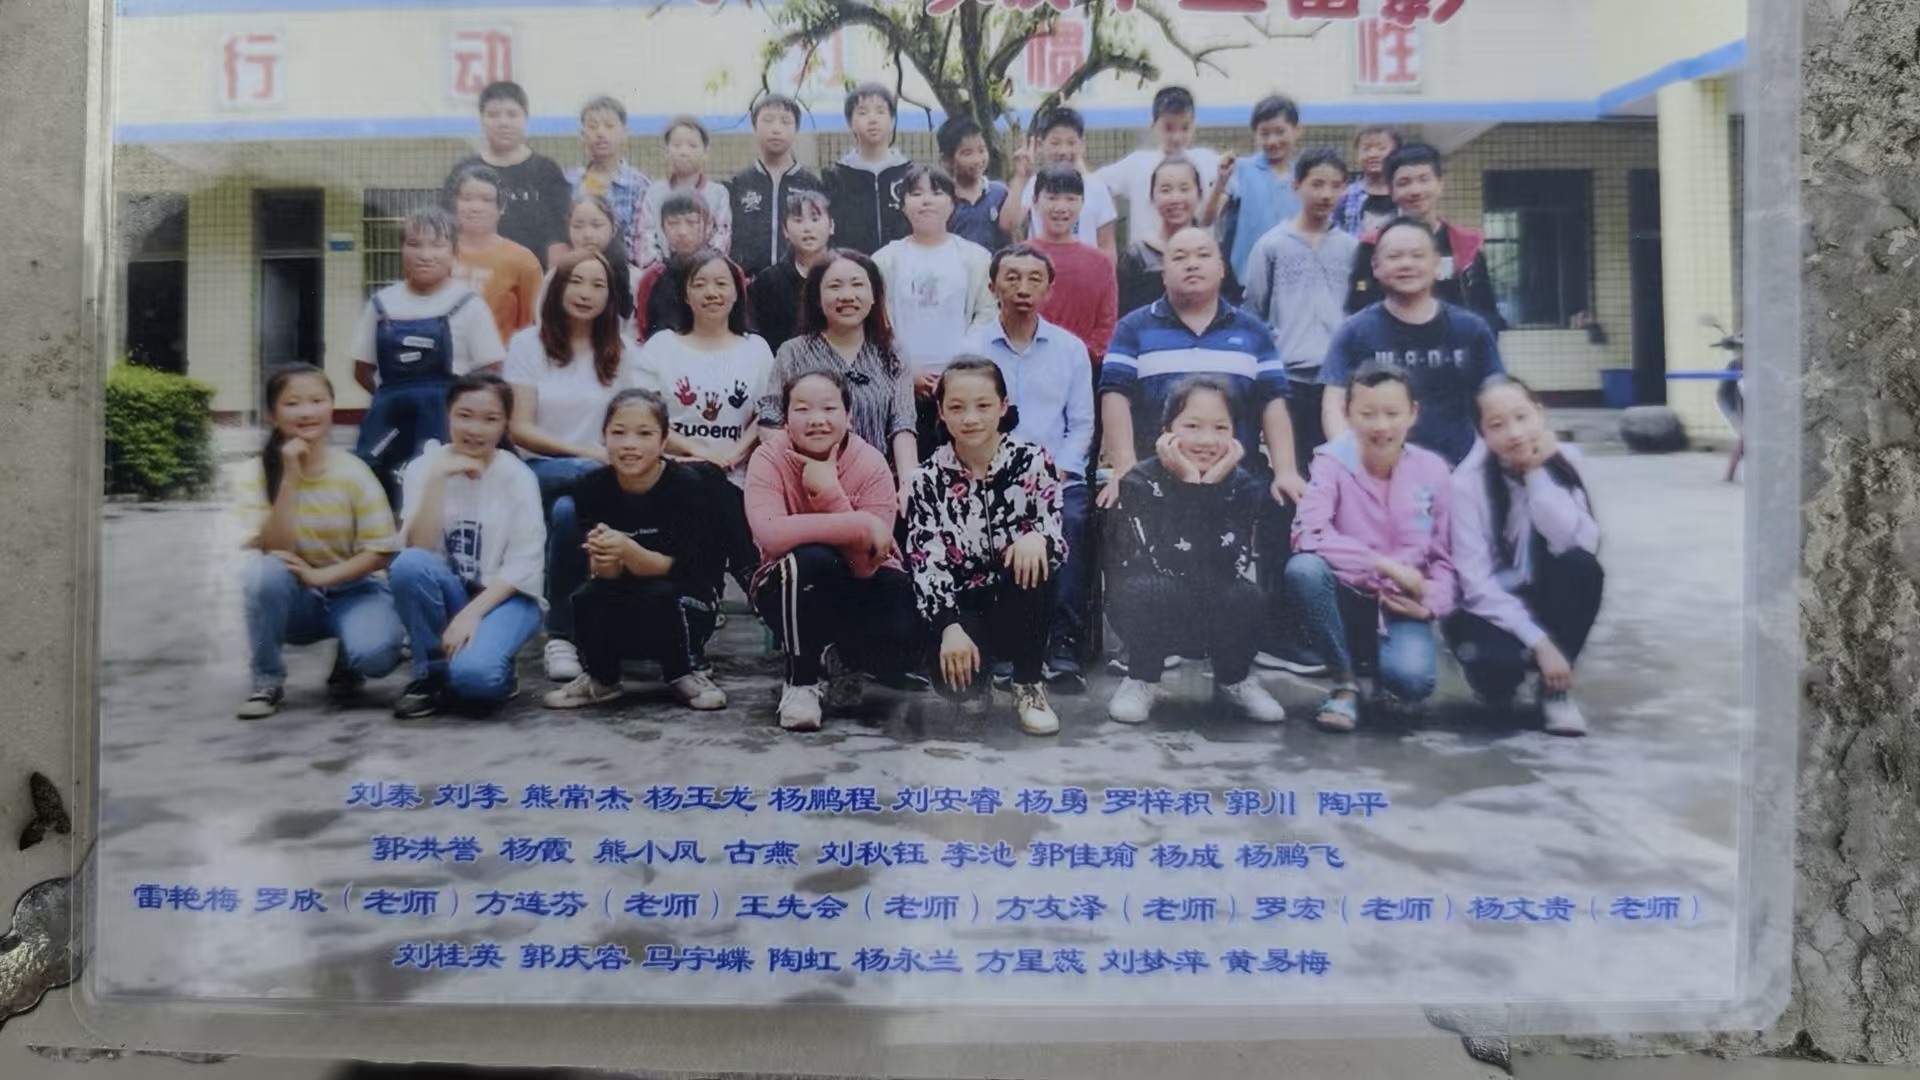 毕业留影
行动 惯性
zuoerqi
W·A·D·E
刘泰 刘李 熊常杰 杨玉龙 杨鹏程 刘安睿 杨勇 罗梓积 郭川 陶平
郭洪誉 杨霞 熊小凤 古燕 刘秋钰 李池 郭佳瑜 杨成 杨鹏飞
雷艳梅 罗欣（老师）方连芬（老师）王先会（老师）方友泽（老师）罗宏（老师）杨文贵（老师）
刘桂英 郭庆容 马宇蝶 陶虹 杨永兰 方星蕊 刘梦萍 黄易梅